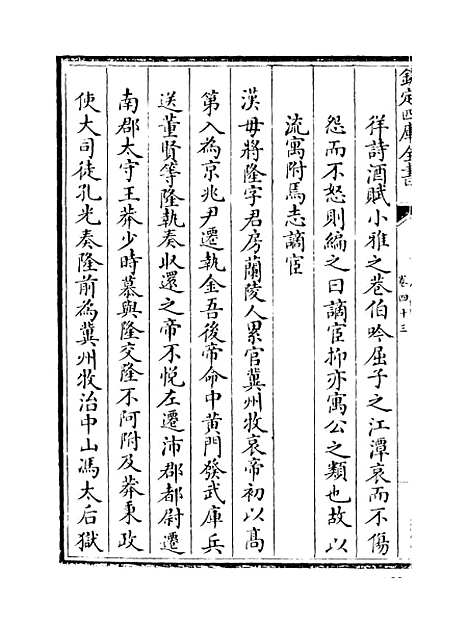 欽定四庫全書
卷四十三
徉詩酒賦小雅之巷伯吟屈子之江潭哀而不傷
怨而不怒則編之曰謫宦抑亦寓公之類也故以
流寓附焉志謫宦
漢毋將隆字君房蘭陵人累官冀州牧哀帝初以髙
第入為京兆尹遷執金吾後帝命中黄門發武庫兵
送董賢等隆執奏收還之帝不悦左遷沛郡都尉遷
南郡太守王莽少時慕與隆交隆不阿附及莽秉政
使大司徒孔光奏隆前為冀州牧治中山馮太后獄